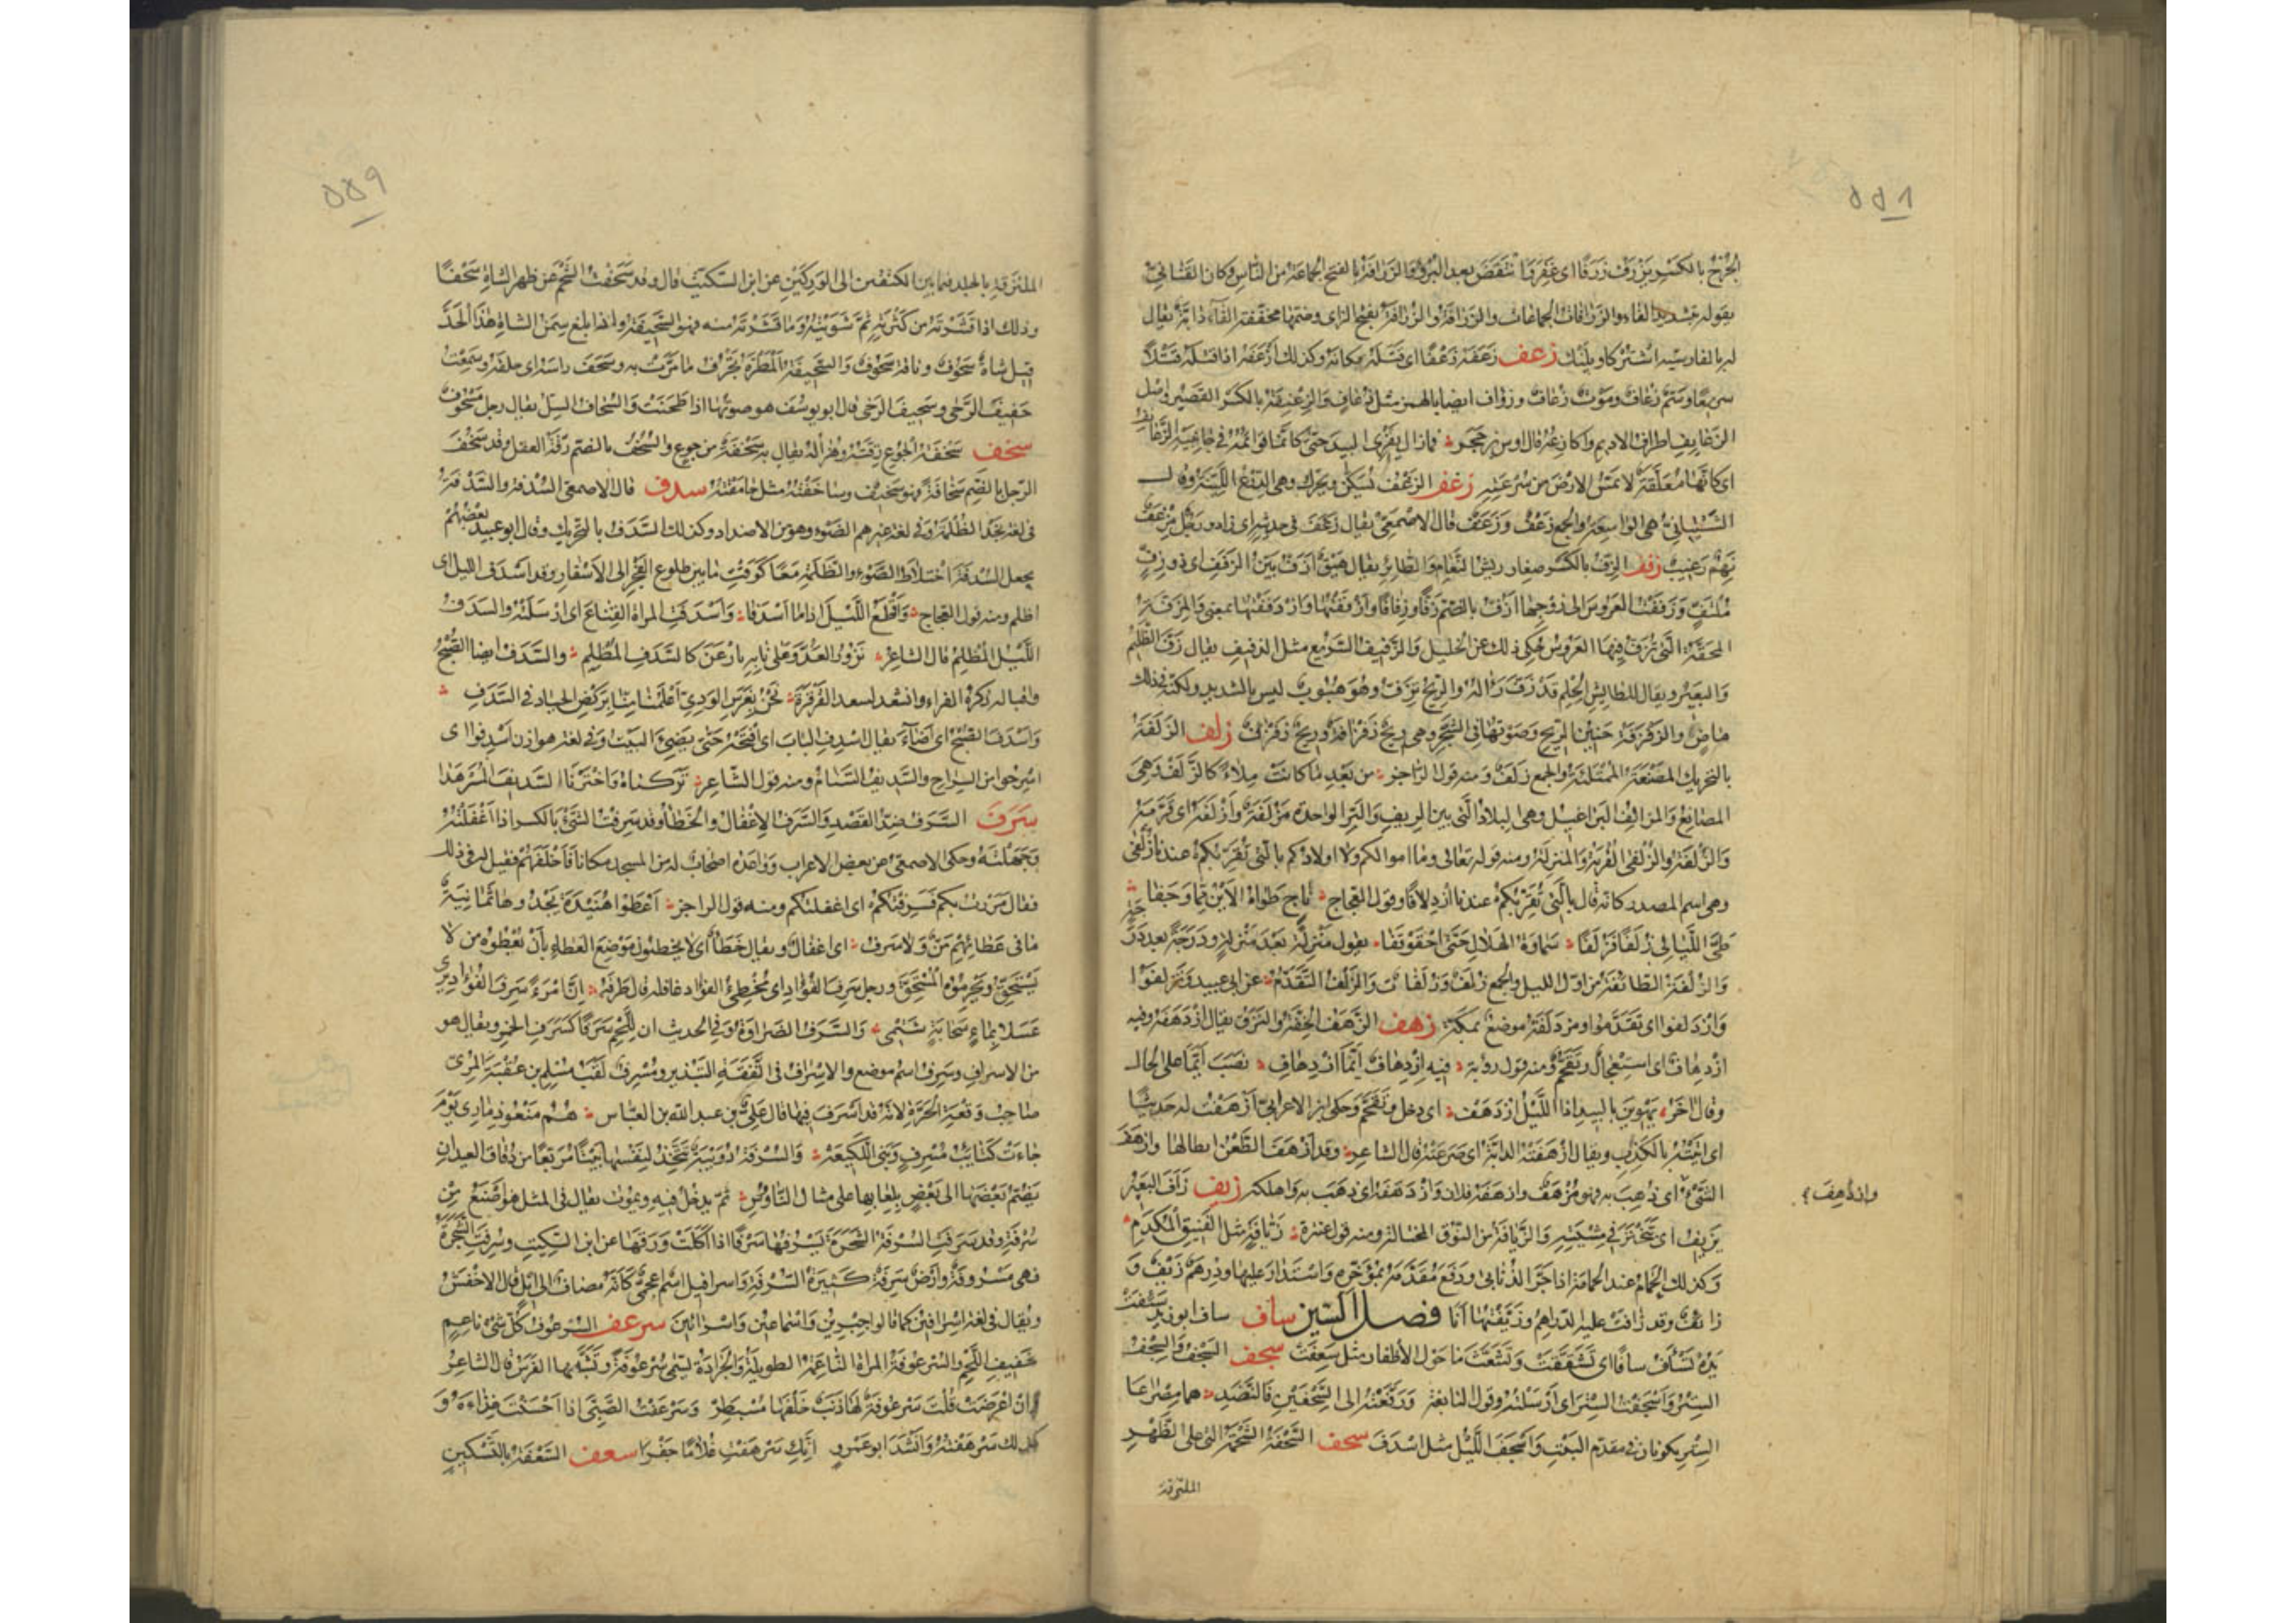 ٥٥٨
الجُرْحُ بالكسر يَزْرَفُ زَرَفًا اى غَفَرَ وَانْتَقَضَ بعد البُرْءِ وَالزَرَافَةُ بالفتح الجماعة من الناس وكان القنانىّ
يقوله بتشديد الفاء والزرافات الجماعات والزرافة والزُرافة بفتح الزاى وضمّها مخففة الفآء دابّة يقال
لها بالفارسية اشتر كاو پلنك زعف زَعَفَهُ زَعْفًا اى قَتَلَهُ مكانه وكذلك أَزْعَفَهُ اذا قتله قَتْلًا
سريعًا وسَمٌّ زُعَافٌ ومَوْتٌ زُعَافٌ وزؤاف ايضا بالهمز مثل زُعافٍ وَالزِعْنِفَةُ بالكسر القصير واصل
الزعانيف اطراف الاديم واكارعه قال اوس بن حجر فمازال يَفْرِى البيد حتى كانما قوائمه فى جانبيه الزعانف
اى كانّها مُعَلَّقَةٌ لا تمسّ الارض من سرعته زغف الزَغْفَةُ تُسَكَّنُ وتحرّك وهى الدِرْعُ اللَيِّنَةُ وقال
الشَيْبانىّ هى الواسعة والجمع زَغْفٌ وَزَغَفٌ قال الاصمعىّ يقال زَغَفَ فى حديثه اى زاد ورجل مِزْغَفٌ
نَهِمٌ رَغِيبٌ زفف الزِفُّ بالكسر صغار ريش النَعَام والطائر يقال هَيْقٌ أَزَفُّ بَيِّنُ الزَفَفِ اى ذو زِفٍّ
مُلْتَفٍّ وَزَفَفْتُ العَرُوسَ الى زوجها أَزُفُّ بالضم زَفًّا وزِفَافًا وأَزْفَفْتُها وَازْدَفَفْتُها بمعنى والمِزَفَّةُ
المِحَفَّةُ التى تُزَفُّ فيها العروس حكى ذلك عن الخليل وَالزَفِيفُ السريع مثل الذفيف يقال زَفَّ الظَلِيمُ
وَالبعير ويقال للطائش الحِلْمِ قد زَفَّ رَأْلُهُ والريح تزفّ وهو هُبُوبٌ ليس بالشديد ولكنه فى ذلك
ماضٍ والزفزفة حَنِينُ الريح وصَوْتُها فى الشجر وهى ريحٌ زَفْزافَةٌ وريحٌ زَفْزَفٌ زلف الزَلَفَةُ
بالتحريك المَصْنَعَةُ الممتلئة والجمع زَلَفٌ ومنه قول الراجز من بَعْدِ ما كانت مِلَاءً كالزَلَف وهى
المصانع وَالمزالفُ البَرَاغيل وهى البلاد التى بين الريف والبَرّ الواحدة مَزْلَفَةٌ وأَزْلَفَهُ اى قَرَّبَهُ
وَالزُلْفَةُ والزُلْفَى القُرْبَةُ والمنزلة ومنه قوله تعالى وما اموالكم ولا اولادكم بالتى تقرّبكم عندنا زُلْفَى
وهى اسم المصدر كانه قال بالتى تُقَرِّبُكم عندنا ازدلافًا وقول العجاج ناجٍ طَوَاهُ الأَيْنُ مِمّا وَجَفَا
طَىَّ اللَيَالِى زُلَفًا فَزُلَفَا سَمَاوَةَ الهلال حتى احقوقفا يقول مَنْزِلَةً بعد منزلة ودرجةً بعد درجة
وَالزُلْفَةُ الطائفة من اوّل الليل والجمع زُلَفٌ وَزُلْفَاتٌ والزَلْفُ التَقَدُّمُ عن ابى عبيد وتَزَلَّفُوا
وَازْدَلفوا اى تقدّموا ومزدلفة موضعٌ بمكة زهف الزَهَفُ الخِفَّةُ والنَزَقُ يقال ازدهفه وفيه
ازْدِهَافٌ اى اسْتِعْجالٌ وتَقَحُّمٌ ومنه قول رؤبة فيه ازْدِهافٌ أَيَّمَا ازْدِهافِ نصب أَيَّمَا على الحال
وقال آخَر يَهْوِينَ بالبيد اذا الليل ازدهف اى دخل وتَقَحَّمَ وحكى ابن الاعرابىّ أَزْهَفْتُ له حديثًا
اى أتيته بالكَذِبِ ويقال ازْهَفَتْهُ الدابّة اى صرعته قال الشاعر وقد أَزْهَفَ الطَعْنُ ابطالها وازهف
الشىْءُ اى ذُهِبَ به فهو مُزْهَفٌ وازهفه فلان وَازْدَهفه اى ذهب به واهلكه زيف زاف البعير
وازدُهِفَ ؟
يَزِيفُ اى تَبَخْتَرَ فى مشيته وَالزَيَّافَةُ من النُوق المختالة ومنه قول عنترة زَيَّافَةٍ مثل الفَنِيق المُكْدَمِ
وكذلك الحمام عند الحمامة اذا جَرَّ الذُنابَى ودَفَعَ مُقَدَّمَهُ بمؤخّره وَاسْتَدارَ عليها ودِرْهَمٌ زَيْفٌ وَ
زائفٌ وقد زافت عليه الدراهم وزَيَّفْتُها أنا فصل السّين ساف ساف ابو زيد سَئِفَتْ
يَدُهُ تَسْأَفُ سأفًا اى تَشَقَّقَتْ وتَشَعَّثَ ما حَوْلَ الأظفار مثل سَعِفَتْ سجف السَجْفُ والسِجْفُ
السِتْرُ وَأَسْجَفْتُ السِتْرَ اى أَرْسَلْتُه وقول النابغة وَرَفَّعَتْهُ الى السِجْفَيْنِ فالنَضَدِ هما مِصْراعا
السِتْر يكونان فى مقدّم البَيْت وَأَسْجَفَ الليْلُ مثل اسْدَفَ سحف السَحْفَةُ الشَحْمَةُ التى على الظَهْرِ
الملتزقة
٥٥٩
الملتزقة بالجلد فيما بين الكتفين الى الوركين عن ابن السكيت قال وقد سَحَفْتُ الشَحْمَ عن ظهر الشاة سَحْفًا
وذلك اذا قَشَرْتَهُ من كثرته ثمّ شَوَيْتَهُ وما قشرته منه فهو السَحِيفَةُ واذا بلغ سِمَنُ الشاة هذا الحَدَّ
قيل شاةٌ سَحُوفٌ وناقة سَحُوفٌ وَالسَحِيفَةُ المَطْرَةُ تَجْرُفُ ما مرّت به وسَحَفَ راسَهُ اى حلقه وسَمِعْتُ
حفيفَ الرَحَى وسَحِيفَ الرَحى قال ابو يوسف هو صوتها اذا طحنت وَالسُحاف السِلُّ يقال رجل مَسْحُوفٌ
سخف سَخْفَةُ الجُوعِ رِقَّتُهُ وهُزاله يقال به سَخْفَةٌ من جوع والسُخْفُ بالضم رقّة العقل وقد سَخُفَ
الرجل بالضم سَخافةً فهو سخيف وساخَفْتُهُ مثل حامَقْتُهُ سدف قال الاصمعى السُدْفَةُ والسَدْفَةُ
فى لغة نجد الظُلْمَة وفى لغة غيرهم الضَوْء وهو من الاضداد وكذلك السَدَفُ بالتحريك وقال ابو عبيد بعضُهم
يجعل السُدفة اختلاط الضَوْء والظلمة مَعًا كوقت ما بين طلوع الفجر الى الأسفار وقد اسدف الليل اى
اظلم ومنه قول العجاج وَأَقْطَعُ الليل اذا ما أَسْدَفَا وَأَسْدَفَتِ المراة القناع اى ارسلته والسَدَفُ
الليل المظلم قال الشاعر نَزُورُ العَدُوَّ على نايه بارعنَ كالسَدَفِ المُظْلِمِ والسَدَف ايضا الصُبْحُ
واقباله ذكره الفراء وانشد لسعد القَرْقَرَةِ نحن بِغَرْسِ الوَدِىِّ أَعْلَمُنَا مِنَّا بِرَكْضِ الجِياد فى السَدَفِ
وَأَسْدَفَ الصُبْحُ اى أضَاءَ يقال اسْدِفِ الباب اى افْتَحْهُ حتى يضىءَ البيت وفى لغة هوازن اسدفوا اى
اسرجوا من السراج والسَدِيفُ السَنامُ ومنه قول الشاعر تركناهُ وَاخْتَرْنَا السَديفَ المُسَرْهَدا
سَرَفَ السَرَفُ ضِدّ القَصْدِ وَالسَرَفُ الإغْفال والخَطَأُ وقد سَرِفْتُ الشىء بالكسر اذا أَغْفَلْتَهُ
وَجَهِلْتَهُ وحكى الاصمعى عن بعض الاعراب وَوَاعَدَهُ اصحابٌ له من المسجد مكانًا فأخلفهم فقيل له فى ذلك
فقال مررت بكم فَسَرِفْتُكُمْ اى اغفلتكم ومنه قول الراجز أَعْطَوْا هُنَيْدَةَ يَحْدُوها ثمانِيَةٌ
ما فى عَطائِهِمُ مَنٌّ ولا سَرَفُ اى اغفالٌ ويقال خَطَأٌ اى لا يخطئون موضع العطاء بأَنْ يُعْطوه من لا
يَسْتَحِقُّ ويَحْرِمُوه المُسْتَحِقَّ ورجل سَرِفُ الفُؤَادِ اى مُخْطِئُ الفؤاد غافله قال طرفة انّ امرءًا سَرِفَ الفؤاد يرى
عَسَلًا بماءِ سَحابَةٍ شَتْمِى وَالسَرَفُ الضَراوَةُ وفى الحديث ان للّحْمِ سَرَفًا كسَرَفِ الخمر ويقال هو
من الاسراف وسَرِف اسم موضع والاسراف فى النفقة التبذير ومُسْرِفٌ لقب مسلم بن عقبة المُرّىّ
صاحب وقعة الحَرَّةِ لانه قد أسرف فيها قال علىّ بن عبد الله بن العباس هُمُ منعوا ذِمَارِى يَوْمَ
جاءَت كتايبُ مُسْرِفٍ وبَنِى اللَّكِيعَه وَالسُرْفَةُ دُوَيْبَةٌ تَتَّخِذُ لنفسها بيتًا مُرَبَّعًا من دقاق العيدان
تضمّ بَعْضَها الى بَعْضٍ بلعابها على مثال الناوُوس ثم يدخل فيه ويموت يقال فى المثل هو أَصْنَعُ مِن
سُرْفَةٍ وقد سَرَفَتِ السُرْفَةُ الشَجَرَةَ تَسْرُفُها سَرْفًا اذا أكَلَتْ وَرَقَها عن ابن السكيت وسُرِفَتِ الشجرة
فهى مَسْرُوفةٌ وأَرْضٌ سَرِفَةٌ كثيرة السُرْفَةِ وَاسرافيل اسم اعجمىّ كانه مضاف الى ايل قال الاخفش
ويقال فى لغةٍ اسرافين كما قالوا جِبْرِينُ وَاسْماعِينُ وَاسْرائينُ سرعف السُرعوفُ كُلّ شىء ناعِمٍ
خفيفِ اللَّحْمِ والسُرعوفة المراة الناعمة الطويلة وَالجرادة تسمى سُرْعُوفةً وتُشَبَّهُ بها الفرس قال الشاعر
وان اعْرَضَت قُلْتَ سُرْعُوفَةٌ لها ذَنَبٌ خَلْفَها مُسْبَطِرّ وسَرْعَفْتُ الصَبِىَّ اذا احْسَنْتَ غِذاءَهُ وَ
كذلك سَرْهَفْتُهُ وَأَنْشَدَ ابو عمرو انَّكِ سَرْهَفْتِ غُلَامًا جَفْرَا سعف السَعْفَةُ بالتسكين